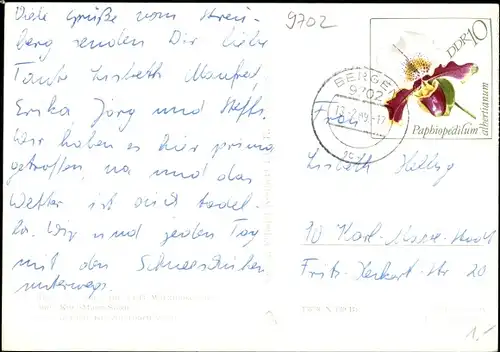 Viele Grüße vom Kreu-
berg senden Dir liebe
Tante Lisbeth Manfred,
Erika, Jörg und Steffi.
Wir haben es hier prima
getroffen, na und das
Wetter ist auch tadel-
los. Wir sind jeden Tag
mit den Schneeschuhen
unterwegs.
9702
DDR 10
Paphiopedilum
albertianum
BERGE
9702
Frau
Lisbeth
90 Karl-Marx-Stadt
Fritz-Heckert-Str 20
1,-